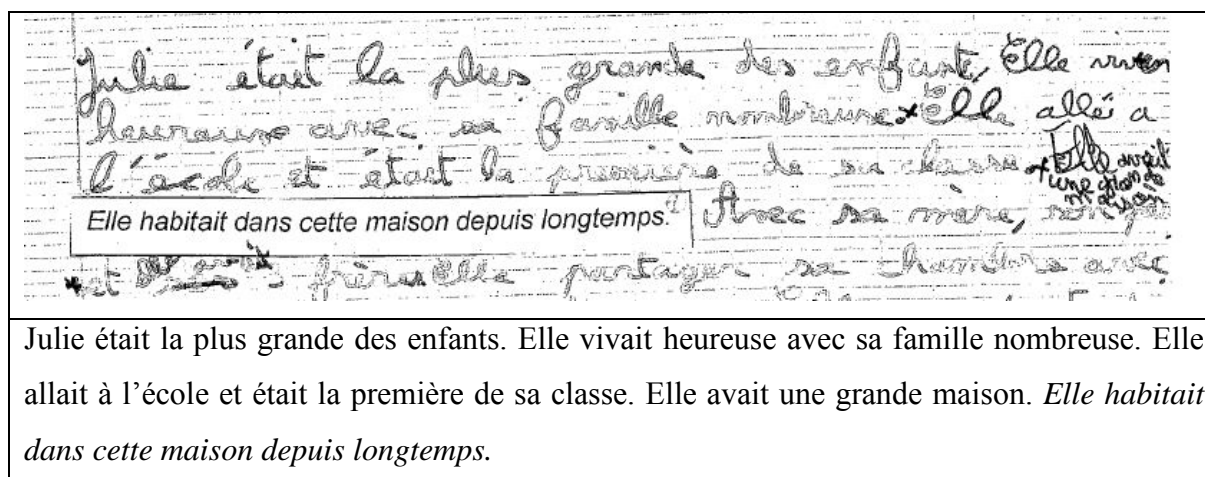 Julie était la plus grande des enfants, Elle viven
heureuse avec sa famille nombreuse Elle allé a
l'école et était la première de sa classe Elle avait
une grande
maison
Elle habitait dans cette maison depuis longtemps. Avec sa mère, son
et frères Elle partager sa chambre avec
Julie était la plus grande des enfants. Elle vivait heureuse avec sa famille nombreuse. Elle
allait à l'école et était la première de sa classe. Elle avait une grande maison. Elle habitait
dans cette maison depuis longtemps.